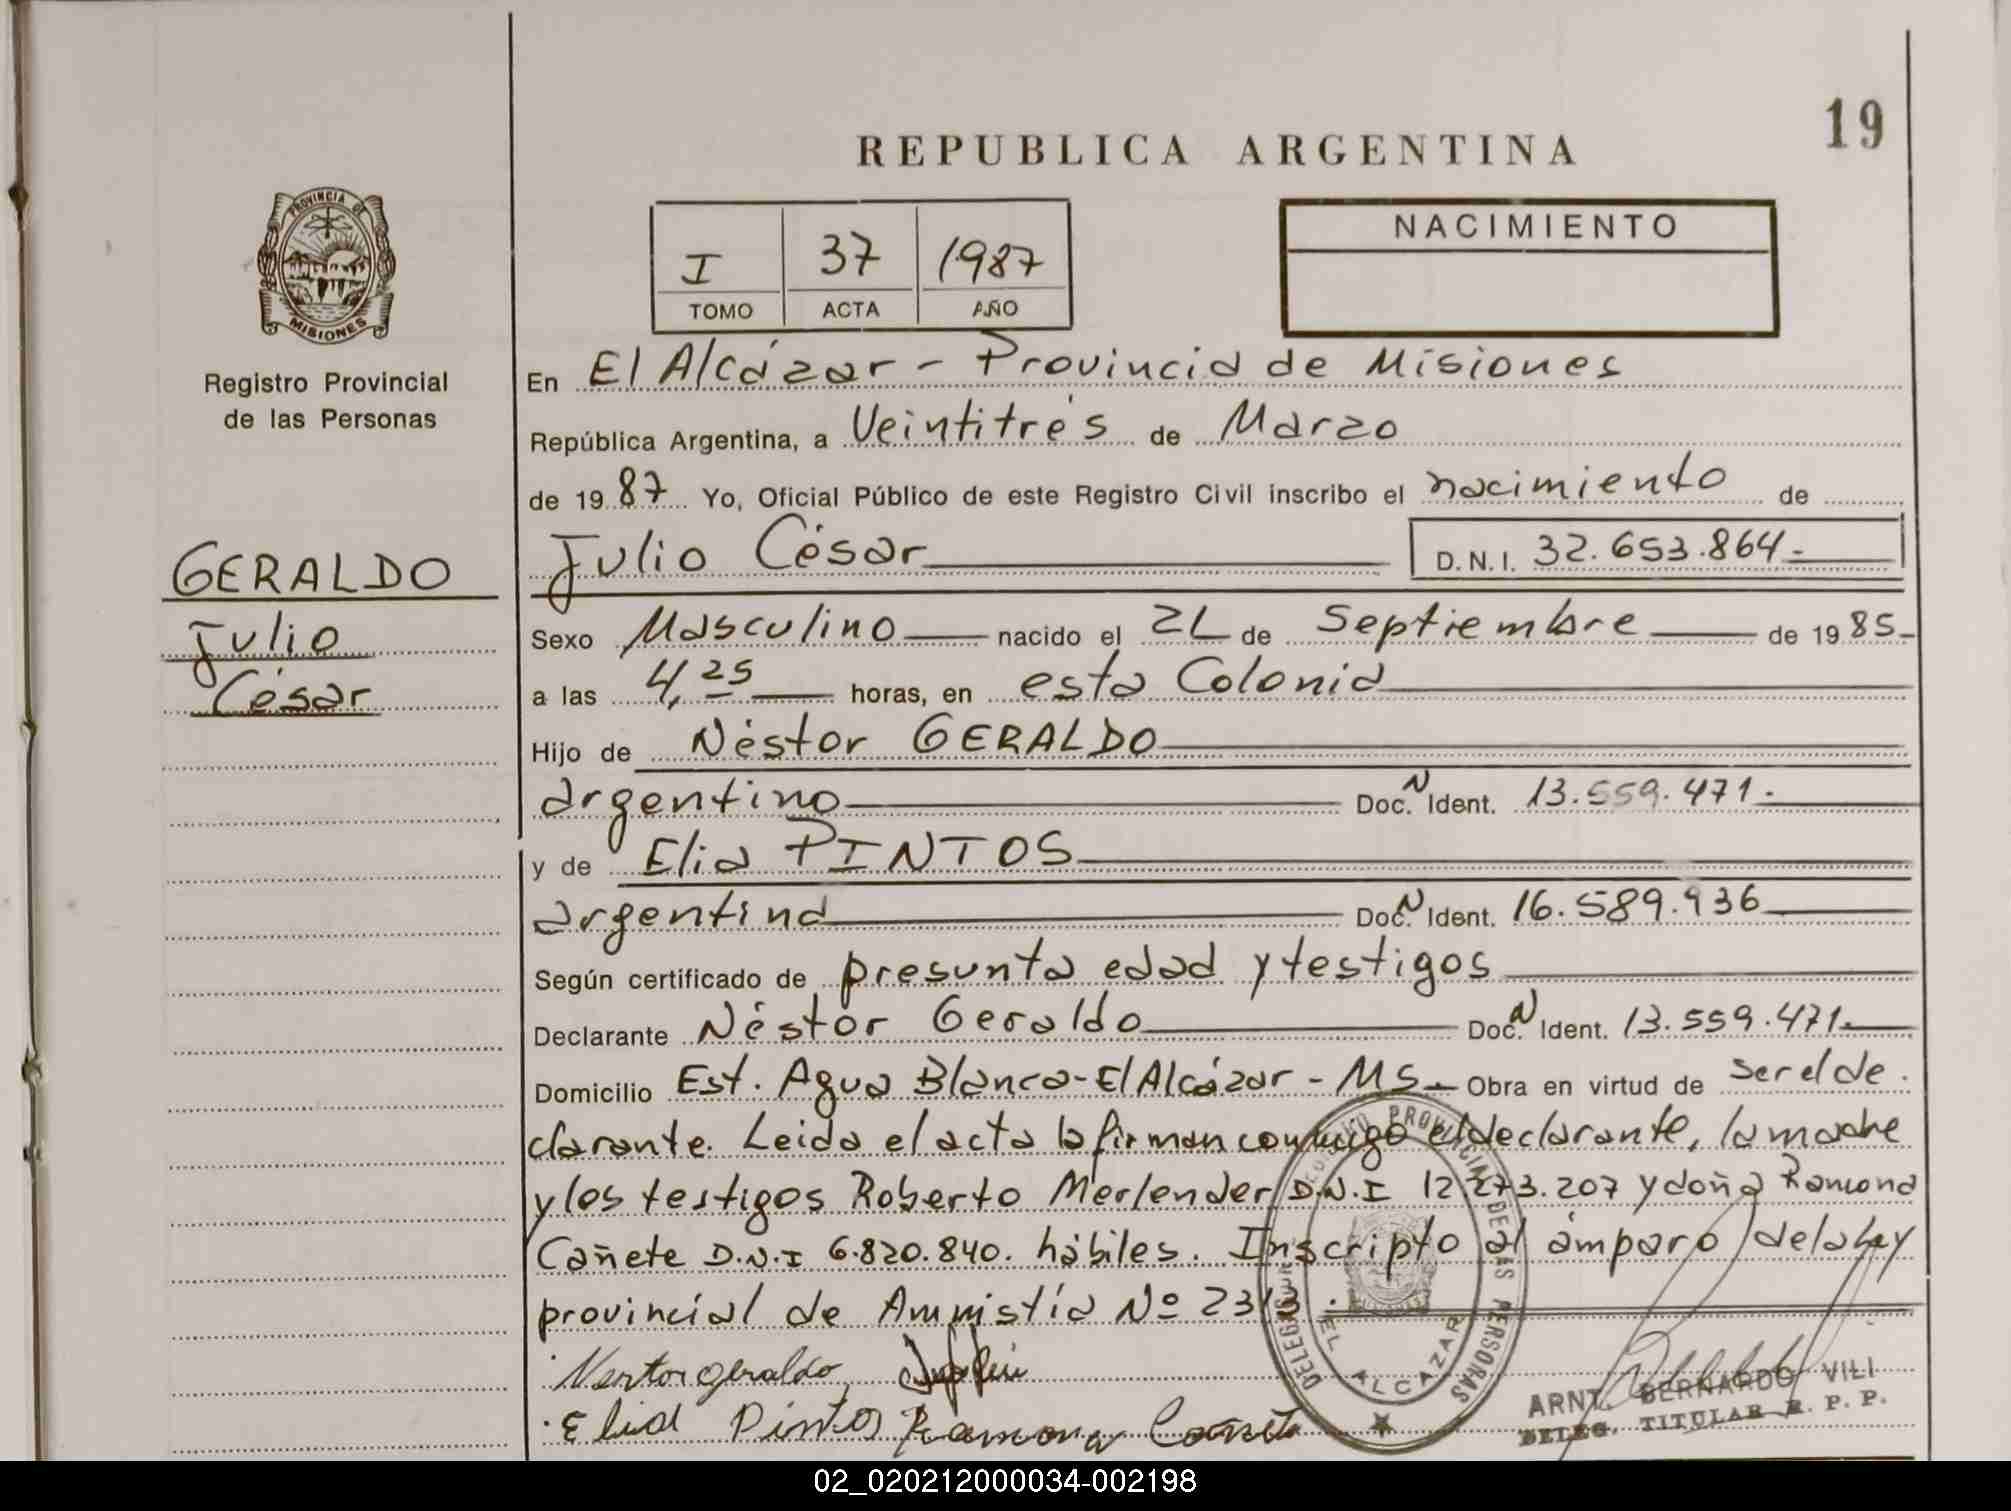 19
REPUBLICA ARGENTINA
PROVINCIA DE
MISIONES
Registro Provincial
de las Personas
I 37 1987
TOMO ACTA AÑO
NACIMIENTO
En El Alcázar - Provincia de Misiones
República Argentina, a Veintitrés de Marzo
de 1987 Yo, Oficial Público de este Registro Civil inscribo el nacimiento de
GERALDO
Julio
César
Julio César D.N.I. 32.653.864.-
Sexo Masculino nacido el 21 de Septiembre de 1985-
a las 4,25 horas, en esta Colonia
Hijo de Néstor GERALDO
argentino Doc. N Ident. 13.559.471.-
y de Elia PINTOS
argentina Doc. N Ident. 16.589.936
Según certificado de presunta edad y testigos
Declarante Néstor Geraldo Doc. N Ident. 13.559.471.-
Domicilio Est. Agua Blanca-El Alcázar - MS.- Obra en virtud de ser el de
clarante. Leida el acta la firman conmigo el declarante, la madre
y los testigos Roberto Merlender D.N.I 12.273.207 y doña Ramona
Cañete D.N.I 6.820.840. hábiles. Inscripto al ámparo de la Ley
provincial de Amnistía Nº 2313.
Nestor geraldo
Elia Pintos Ramona Cañete
REGISTRO PROVINCIAL DE LAS PERSONAS
DELEGACION
EL ALCAZAR
ARNT. BERNARDO VILI
DELEG. TITULAR R. P. P.
02_020212000034-002198